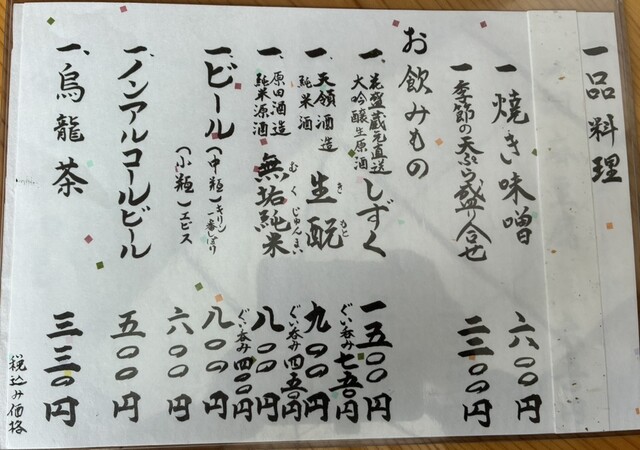 一品料理
一 焼き味噌 六〇〇円
一 季節の天ぷら盛り合せ 二三〇〇円
お飲みもの
一、花盛蔵元直送 大吟醸生原酒 しずく 一五〇〇円
ぐい呑み 七五〇円
一、天領酒造 純米酒 生酛 九〇〇円
きもと
ぐい呑み 四五〇円
一、原田酒造 純米原酒 無垢純米 八〇〇円
むく じゅんまい
ぐい呑み 四〇〇円
一、ビール (中瓶) キリン 一番しぼり 八〇〇円
(小瓶) エビス 六〇〇円
一、ノンアルコールビール 五〇〇円
一、烏龍茶 三三〇円
税込み価格